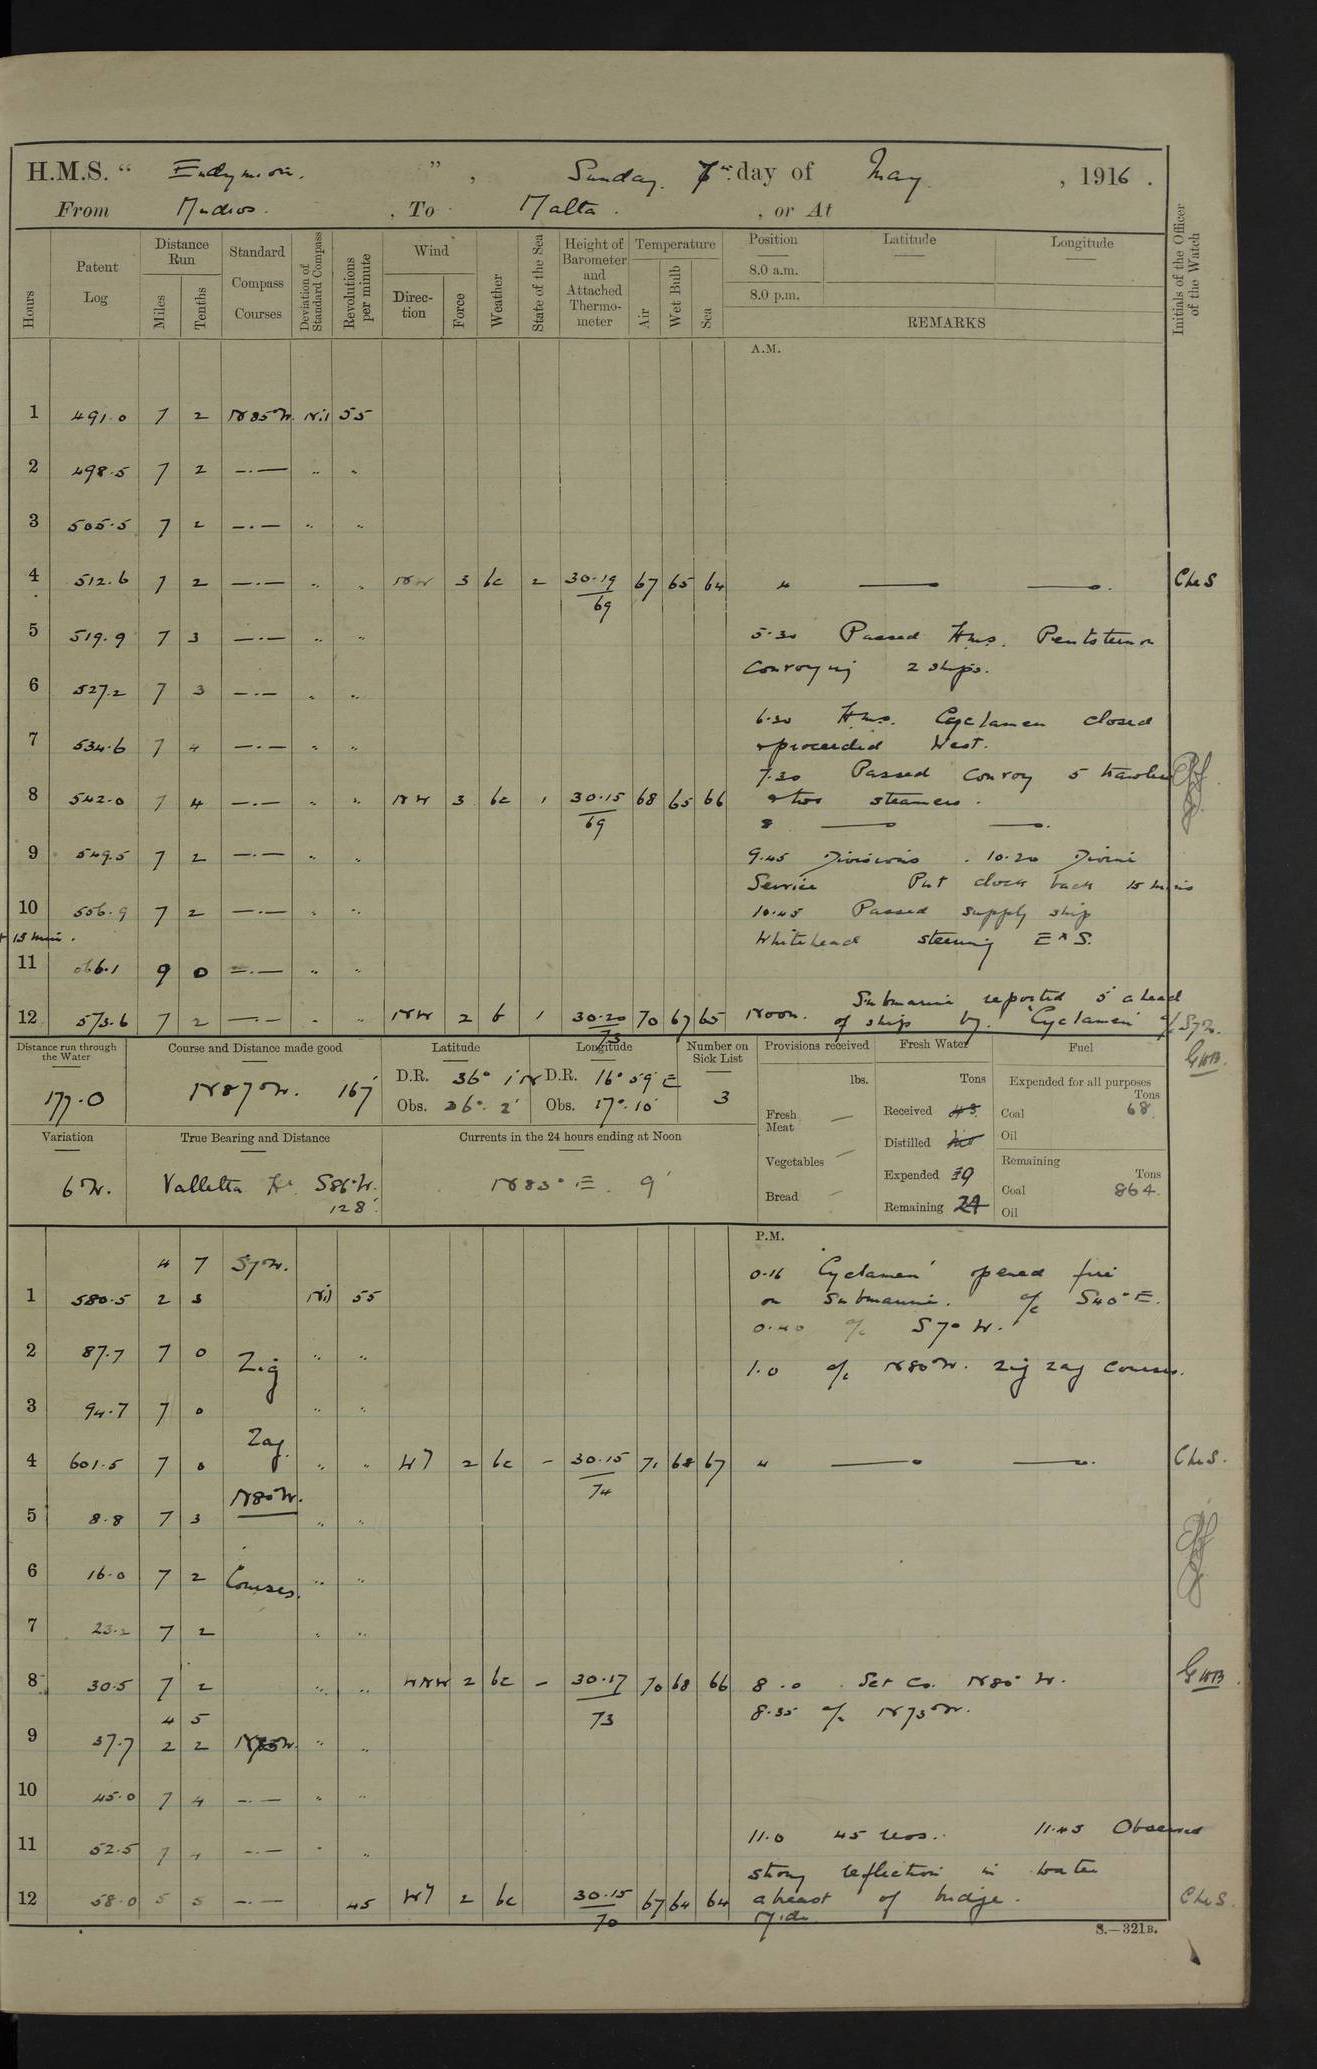 H.M.S. “ Endymion. ” , Sunday. 7th day of May , 1916 .
From Mudros. , To Malta . , or At
Hours Patent Log Distance Run Miles Tenths Standard Compass Courses Deviation of Standard Compass Revolutions per minute Wind Direc-tion Force Weather State of the Sea Height of Barometer and Attached Thermo-meter Temperature Air Wet Bulb Sea Position 8.0 a.m. 8.0 p.m. Latitude Longitude REMARKS Initials of the Officer of the Watch
A.M.
1 491.0 7 2 N85°W. Nil 55
2 498.5 7 2 —.— „ „
3 505.5 7 2 —.— „ „
4 512.6 7 2 —.— „ „ NW 3 bc 2 30.19 67 65 64 4 —— ——. ChS
69
5 519.9 7 3 —.— „ „ 5.30 Passed H.M.S. Pentstemon
convoying 2 ships.
6 527.2 7 3 —.— „ „
6.30 H.M.S. Cyclamen closed
7 534.6 7 4 —.— „ „ & proceeded West.
7.30 Passed convoy 5 trawlers
8 542.0 7 4 —.— „ „ NW 3 bc 1 30.15 68 65 66 & two steamers.
69 8 —— ——.
9 549.5 7 2 —.— „ „ 9.45 Divisions . 10.20 Divine
Service Put clock back 15 mins
10 556.9 7 2 —.— „ „ 10.45 Passed supply ship
+ 15 min. Whitehead steering E x S.
11 566.1 9 0 —.— „ „
Submarine reported 5' ahead
12 573.6 7 2 —.— „ „ NW 2 b 1 30.20 70 67 65 Noon. of ship by. "Cyclamen" a/c S7W.
73 GWB.
Distance run through the Water Course and Distance made good Latitude Longitude Number on Sick List Provisions received Fresh Water Fuel
177.0 N87°W. 167' D.R. 36° 1' N D.R. 16° 59' E 3 lbs. Tons Expended for all purposes Tons
Obs. 36°. 2' Obs. 17°. 10' Fresh Meat — Received 43 Coal 68.
Distilled Oil
Variation True Bearing and Distance Currents in the 24 hours ending at Noon
Vegetables — Expended 19 Remaining Tons
6°W. Valletta Hr S86°W. N83° E. 9' Bread — Remaining 24 Coal 864.
128' Oil
P.M.
4 7 S7W. 0.16 "Cyclamen" opened fire
1 580.5 2 3 Nil 55 on submarine. a/c S40°E.
0.40 a/c S70W.
2 87.7 7 0 Zig „ „ 1.0 a/c N80°W. zig zag courses.
3 94.7 7 0 „ „
4 601.5 7 0 Zag. „ „ 2 bc – 30.15 71 68 67 4 —— ——. ChS.
74
N80°W.
5 8.8 7 3 „ „
6 16.0 7 2 Courses. „ „
7 23.2 7 2 „ „
8 30.5 7 2 „ „ WNW 2 bc – 30.17 70 68 66 8.0 Set Co. N80° W. GWB
4 5 73 8.35 a/c N73°W.
9 37.7 2 2 „ „
10 45.0 7 4 —.— „ „
11 52.5 7 4 —.— „ „ 11.0 45 revs. 11.45 Observed
strong reflection in water
12 58.0 5 5 —.— 45 2 bc 30.15 67 64 64 abeast of bridge. ChS.
70 Mid.
S.—321B.